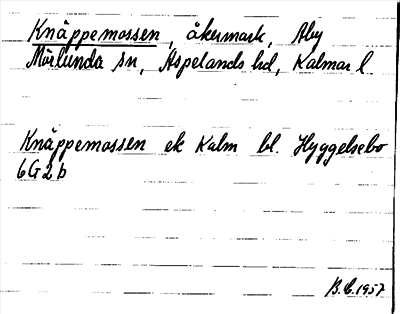 Knäppemossen, åkermark, Åby
Mörlunda sn, Aspelands hd, Kalmar l.
Knäppemossen ek Kalm bl. Hyggelsebo
6G2b
B.C. 1957